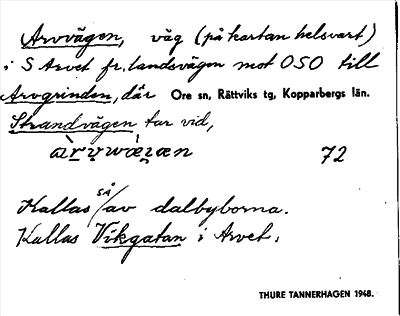 Arvvägen, väg (på kartan helsvart)
i S Arvet fr. landsvägen mot OSO till
Arvgrinden, där Ore sn, Rättviks tg, Kopparbergs län.
Strandvägen tar vid,
72
Kallas så av dalbyborna.
Kallas Vikgatan i Arvet.
THURE TANNERHAGEN 1948.